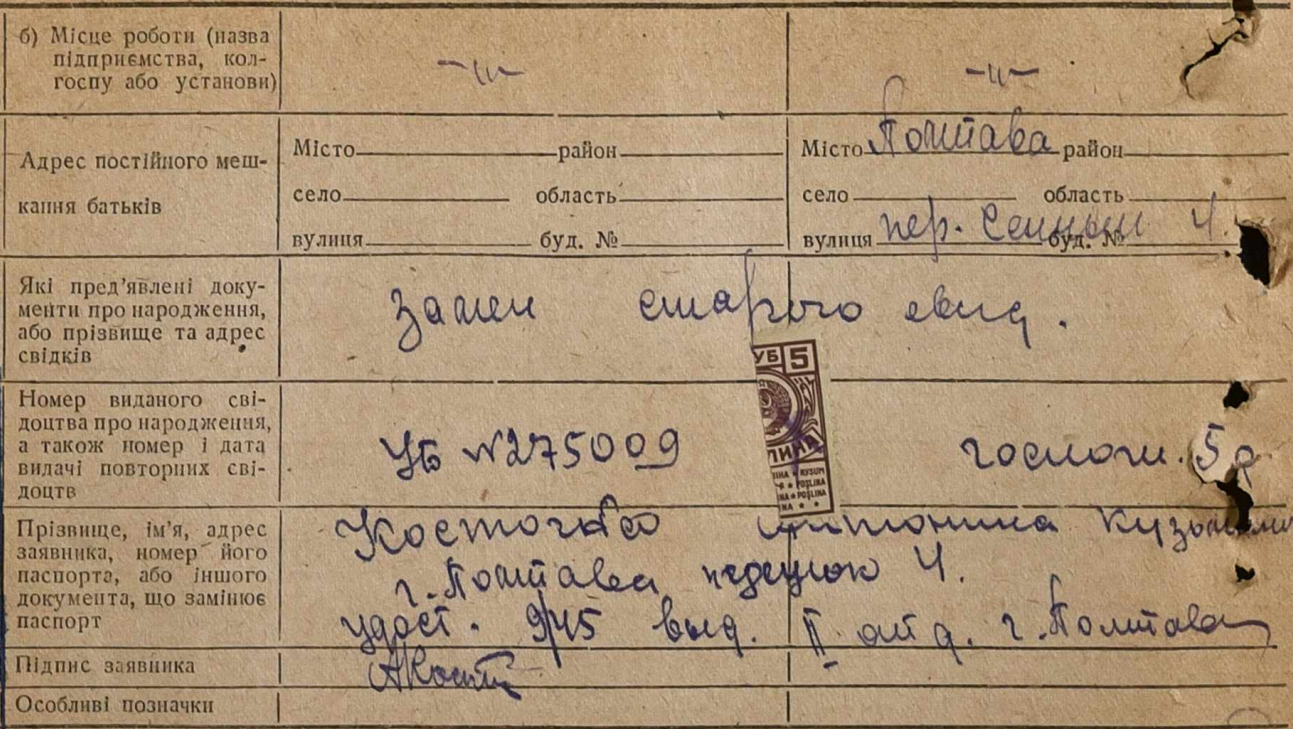 б) Місце роботи (назва
підприємства, кол-
госпу або установи)
-〃- -〃-
Адрес постійного меш-
кання батьків
Місто район
село область
вулиця буд. №
Місто Полтава район
село область
вулиця пер. Сенный буд. № 4.
Які пред’явлені доку-
менти про народження,
або прізвище та адрес
свідків
Замен старого свид.
Номер виданого сві-
доцтва про народження,
а також номер і дата
видачі повторних сві-
доцтв
УБ №275009 госпош. 5р
УБ 5
ЛИНА
RYSUM
POŞLINA
POŞLINA
Прізвище, ім’я, адрес
заявника, номер його
паспорта, або іншого
документа, що замінює
паспорт
Антонина
г. Полтава 4.
удост. 9/45 выд. II отд. г. Полтава
Підпис заявника
Особливі позначки